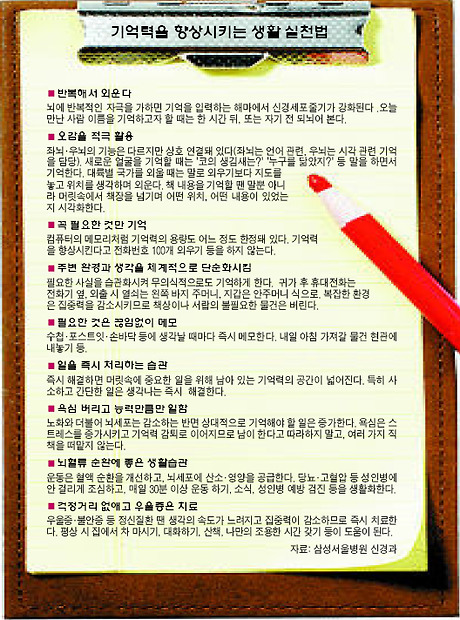 기억력을 향상시키는 생활 실천법
■ 반복해서 외운다
뇌에 반복적인 자극을 가하면 기억을 입력하는 해마에서 신경세포줄기가 강화된다 .오늘
만난 사람 이름을 기억하고자 할 때는 한 시간 뒤, 또는 자기 전 되뇌어 본다.
■ 오감을 적극 활용
좌뇌·우뇌의 기능은 다르지만 상호 연결돼 있다(좌뇌는 언어 관련, 우뇌는 시각 관련 기억
을 담당). 새로운 얼굴을 기억할 때는 '코의 생김새는?' '누구를 닮았지?' 등 말을 하면서
기억한다. 대륙별 국가를 외울 때는 말로 외우기보다 지도를
놓고 위치를 생각하며 외운다. 책 내용을 기억할 땐 말뿐 아니
라 머릿속에서 책장을 넘기며 어떤 위치, 어떤 내용이 있었는
지 시각화한다.
■ 꼭 필요한 것만 기억
컴퓨터의 메모리처럼 기억력의 용량도 어느 정도 한정돼 있다. 기억력
을 향상시킨다고 전화번호 100개 외우기 등을 하지 않는다.
■ 주변 환경과 생각을 체계적으로 단순화시킴
필요한 사실을 습관화시켜 무의식적으로도 기억하게 한다. 귀가 후 휴대전화는
전화기 옆, 외출 시 열쇠는 왼쪽 바지 주머니, 지갑은 안주머니 식으로, 복잡한 환경
은 집중력을 감소시키므로 책상이나 서랍의 불필요한 물건은 버린다.
■ 필요한 것은 끊임없이 메모
수첩·포스트잇·손바닥 등에 생각날 때마다 즉시 메모한다. 내일 아침 가져갈 물건 현관에
내놓기 등.
■ 일을 즉시 처리하는 습관
즉시 해결하면 머릿속에 중요한 일을 위해 남아 있는 기억력의 공간이 넓어진다. 특히 사
소하고 간단한 일은 생각나는 즉시 해결한다.
■ 욕심 버리고 능력만큼만 일함
노화와 더불어 뇌세포는 감소하는 반면 상대적으로 기억해야 할 일은 증가한다. 욕심은 스
트레스를 증가시키고 기억력 감퇴로 이어지므로 남이 한다고 따라하지 말고, 여러 가지 직
책을 떠맡지 않는다.
■ 뇌혈류 순환에 좋은 생활습관
운동은 혈액 순환을 개선하고, 뇌세포에 산소·영양을 공급한다. 당뇨·고혈압 등 성인병에
안 걸리게 조심하고, 매일 30분 이상 운동 하기, 소식, 성인병 예방 검진 등을 생활화한다.
■ 걱정거리 없애고 우울증은 치료
우울증·불안증 등 정신질환 땐 생각의 속도가 느려지고 집중력이 감소하므로 즉시 치료한
다. 평상 시 집에서 차 마시기, 대화하기, 산책, 나만의 조용한 시간 갖기 등이 도움이 된다.
자료: 삼성서울병원 신경과